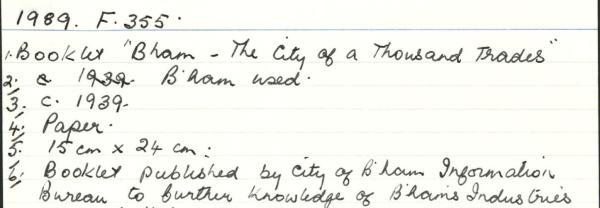 1989. F. 355.
1. Booklet "Bham - The City of a Thousand Trades"
2. c. 1939. B'ham used.
3. c. 1939.
4. Paper.
5. 15 cm x 24 cm:
6. Booklet published by City of B'ham Information
Bureau to further knowledge of B'hams Industries